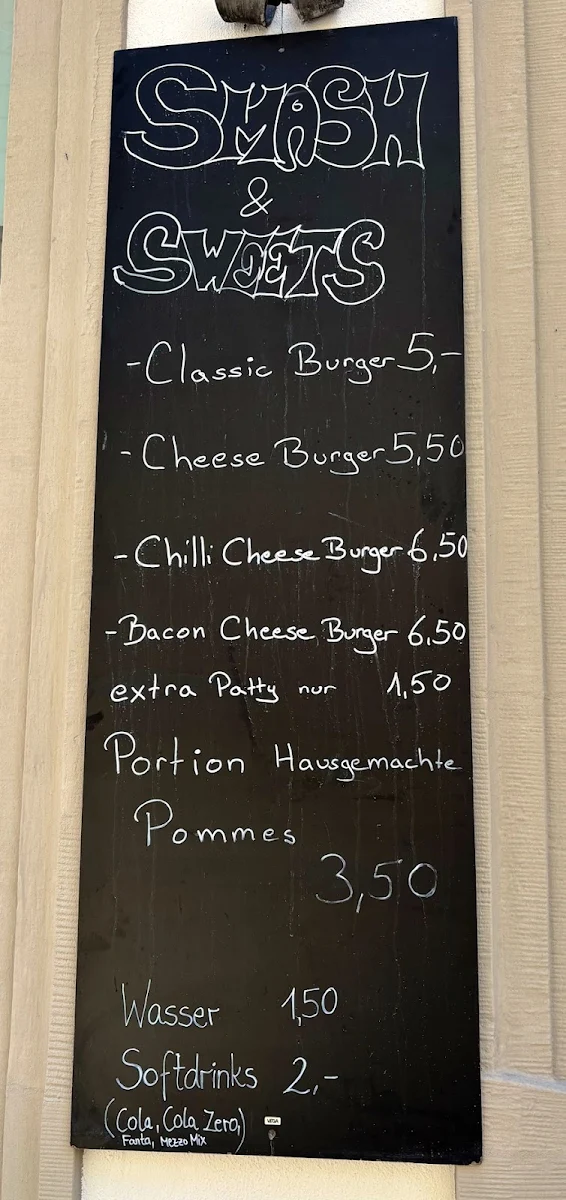 SMASH
&
SWEETS
- Classic Burger 5,-
- Cheese Burger 5,50
- Chilli Cheese Burger 6,50
- Bacon Cheese Burger 6,50
extra Patty nur 1,50
Portion Hausgemachte
Pommes
3,50
Wasser 1,50
Softdrinks 2,-
(Cola, Cola Zero,
Fanta, Mezzo Mix)
VEGA